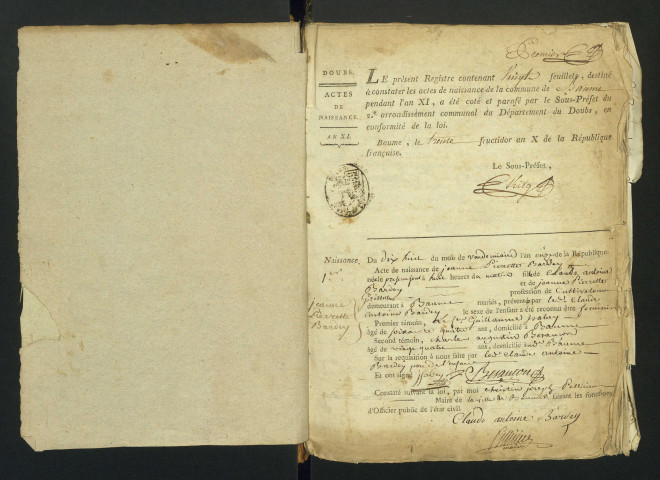 Premier
DOUBS.
ACTES
DE
NAISSANCE.
AN XI.
LE présent Registre contenant Vingt feuillets, destiné
à constater les actes de naissance de la commune de Baume
pendant l'an XI, a été coté et parafé par le Sous-Préfet du
2.e arrondissement communal du Département du Doubs, en
conformité de la loi.
Baume, le trente fructidor an X de la République
française.
Le Sous-Préfet,
Naissance.
1.er
jeanne
Pierrette
Bardey
Du dix huit du mois de vendemiaire l'an onze de la République
Acte de naissance de jeanne Pierrette Bardey
née le heures du matin fille de Claude antoine
Bardey et de jeanne Pierrette
profession de Cultivateur
demeurant à Baume mariés, présenté par led. Claude
antoine Bardey le sexe de l'enfant a été reconnu être feminin
Premier témoin, Guillaume
âgé de soixante quatre ans, domicilié à Baume
Second témoin, charles augustin Besançon
âgé de vingt quatre ans, domicilié aud. Baume
Sur la réquisition à nous faite par led. Claude antoine
Bardey père de l'enfant
Et ont signé Besançon
Constaté suivant la loi, par moi christin joseph
Maire de la ville de Baume faisant les fonctions
d'Officier public de l'état civil.
Claude antoine Bardey